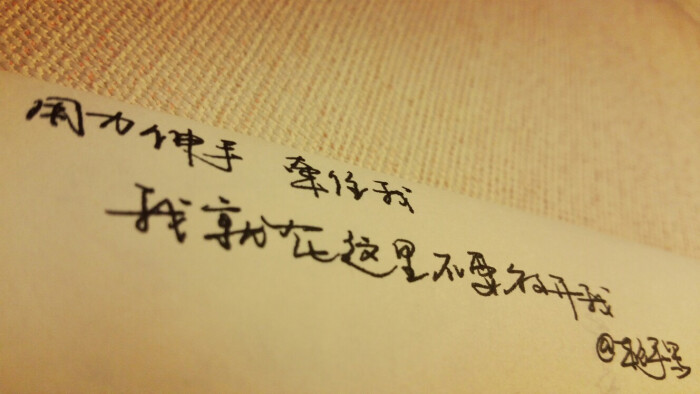 用力伸手 牵住我
我就在这里不要放开我